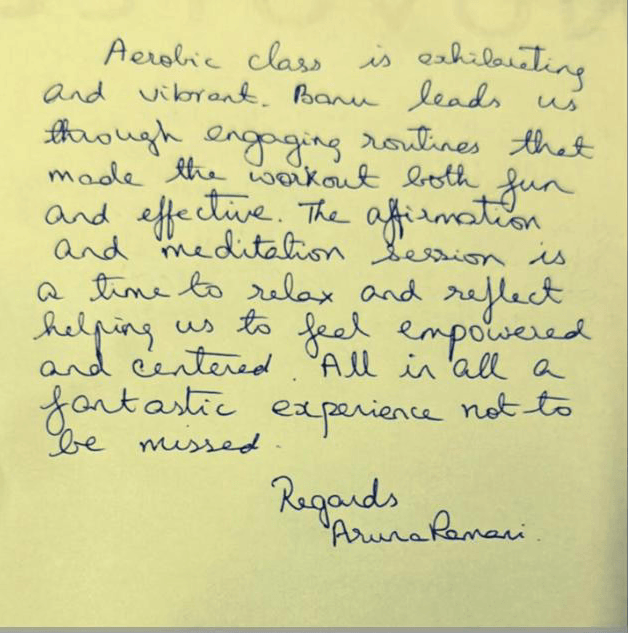 Aerobic class is exhilarating
and vibrant. Banu leads us
through engaging routines that
made the workout both fun
and effective. The affirmation
and meditation session is
a time to relax and reflect
helping us to feel empowered
and centered. All in all a
fantastic experience not to
be missed.
Regards
Aruna Ramani.